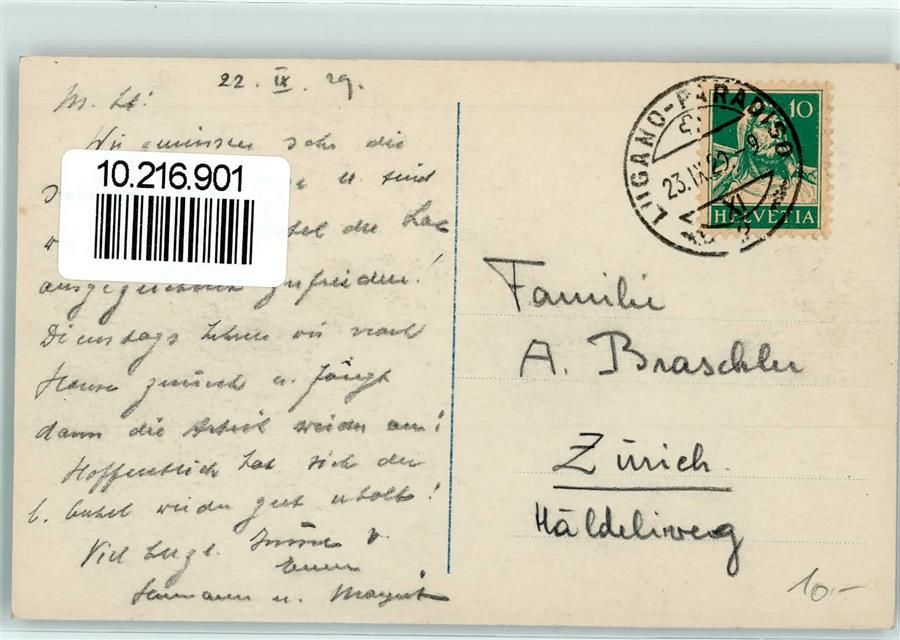 22. IX. 29.
M. Lb!
Wir geniessen sehr die
u. sind
der
ausgezeichnet zufrieden!
Dienstags kehren wir nach
Hause zurück u. fängt
dann die Arbeit wieder an!
Hoffentlich hat sich der
l. wieder gut erholt!
Viel herzl. Grüsse v.
Euren
Hermann u. Margrit
10.216.901
LUGANO-PARADISO
23.IX.29.-9
10
HELVETIA
Familie
A. Braschler
Zürich.
Häldeliweg
10.-